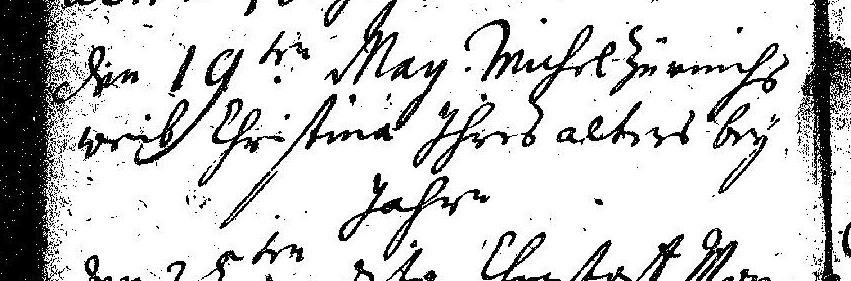 den 19ten May. Michel Zürnichs
weib Christina Ihres alters bey
Jahrn
den 25ten dito Christoff